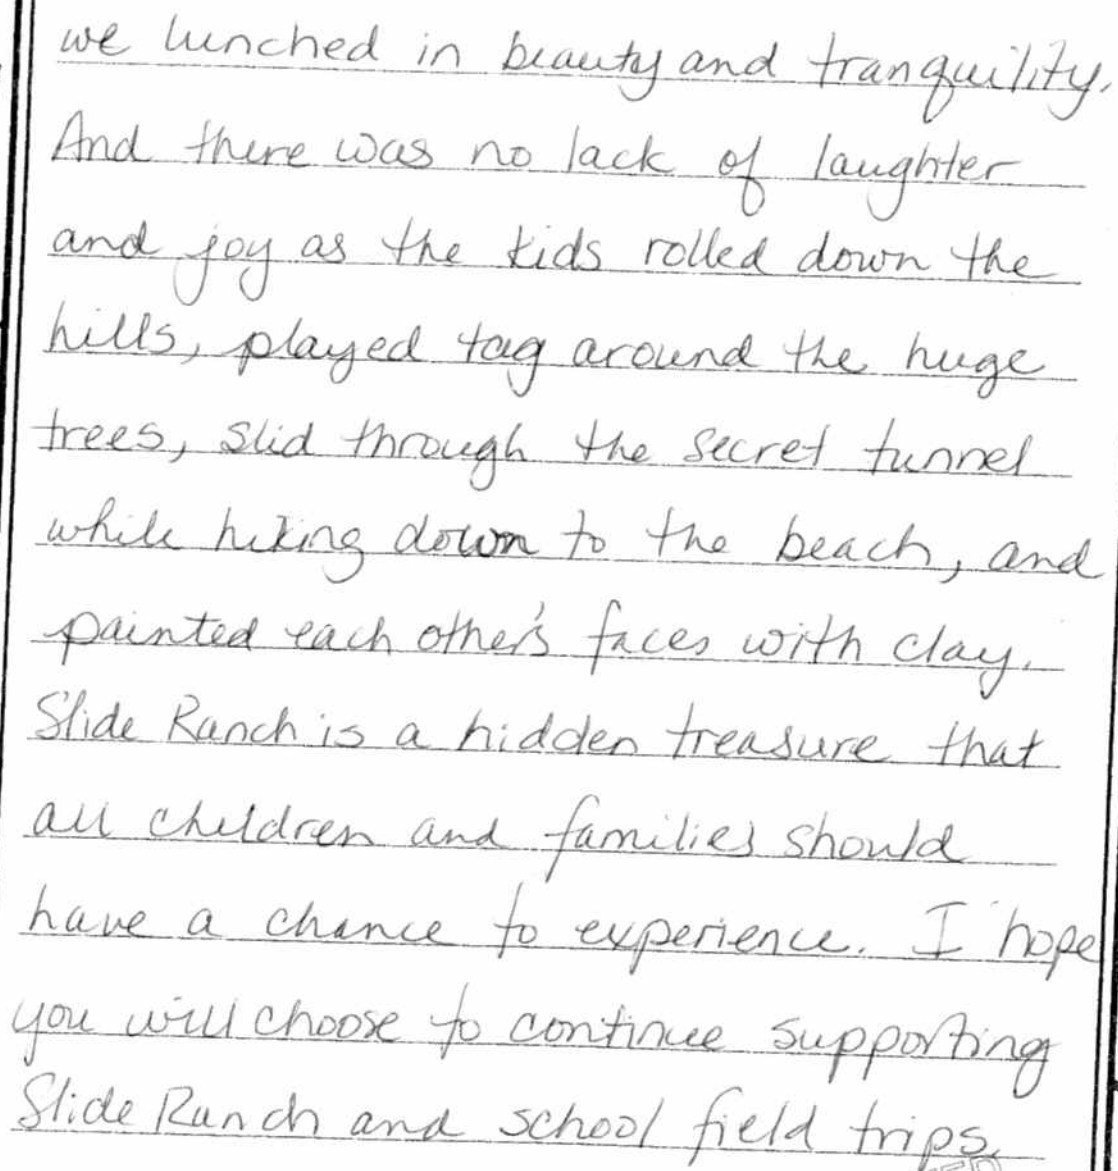 we lunched in beauty and tranquility.
And there was no lack of laughter
and joy as the kids rolled down the
hills, played tag around the huge
trees, slid through the secret tunnel
while hiking down to the beach, and
painted each other's faces with clay.
Slide Ranch is a hidden treasure that
all children and families should
have a chance to experience. I hope
you will choose to continue supporting
Slide Ranch and school field trips.